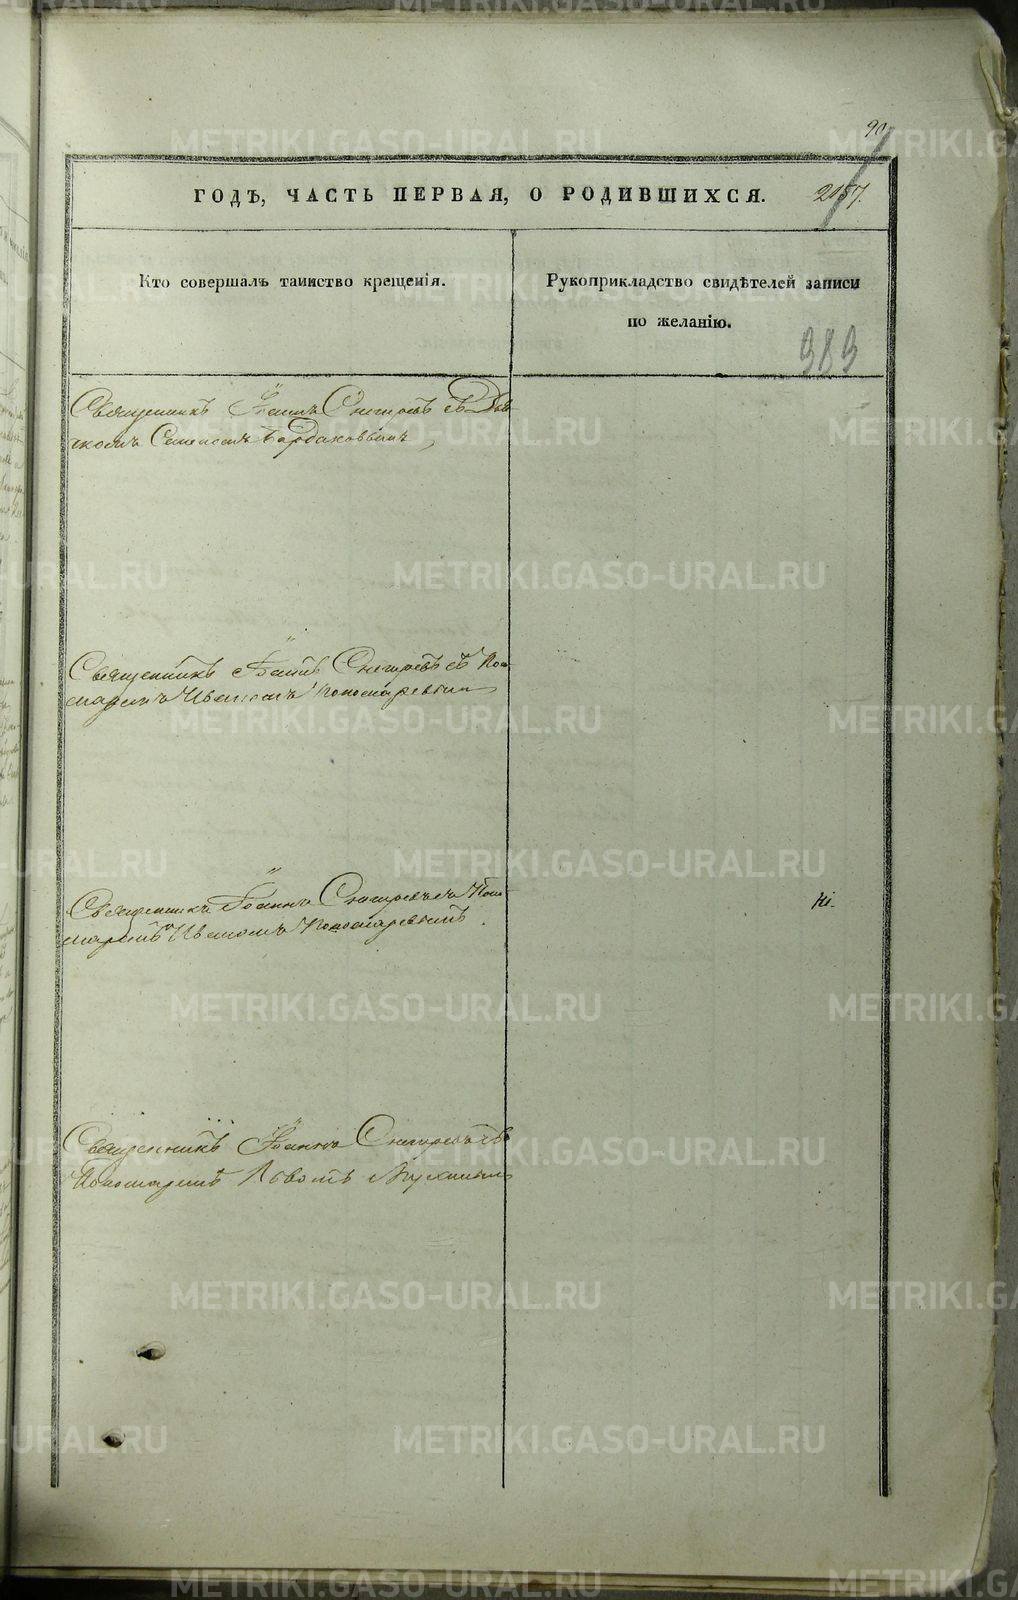 90
ГОДЪ, ЧАСТЬ ПЕРВАЯ, О РОДИВШИХСЯ.
Кто совершалъ таинство крещенія.
Рукоприкладство свидѣтелей записи
по желанію.
383
Священникъ Іоаннъ Снегиревъ съ Дья
чкомъ Симеономъ Бардаковымъ
Священникъ Іоаннъ Снегиревъ съ Поно
маремъ Иваномъ Пономаревымъ
Священникъ Іоаннъ Снегиревъ съ Поно
маремъ Иваномъ Пономаревымъ
Священникъ Іоаннъ Снегиревъ съ
Пономаремъ Львомъ
METRIKI.GASO-URAL.RU